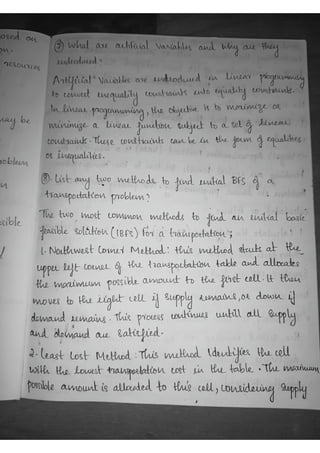 osed on
on.
resources
may be
oblem
n
sible
⑦ What are artificial variables and why are they
introduced?
Artificial Variables are introduced in linear programming
to convert inequality constraints into equality constraints.
In linear programming, the objective is to maximize or
minimize a linear function subject to a set of linear
constraints. These constraints can be in the form of equalities
or inequalities.
⑧ List any two methods to find initial BFS of a
transportation problem?
The two most common methods to find an initial basic
feasible solution (IBFS) for a transportation;
1. Northwest Corner Method: this method starts at the
upper left corner of the transportation table and allocates
the maximum possible amount to the first cell. It then
moves to the right cell if supply remains, or down if
demand remains. This process continues untill all supply
and demand are satisfied.
2. Least Cost Method: This method Identifies the cell
with the lowest transportation cost in the table. The maximum
possible amount is allocated to this cell, considering supply